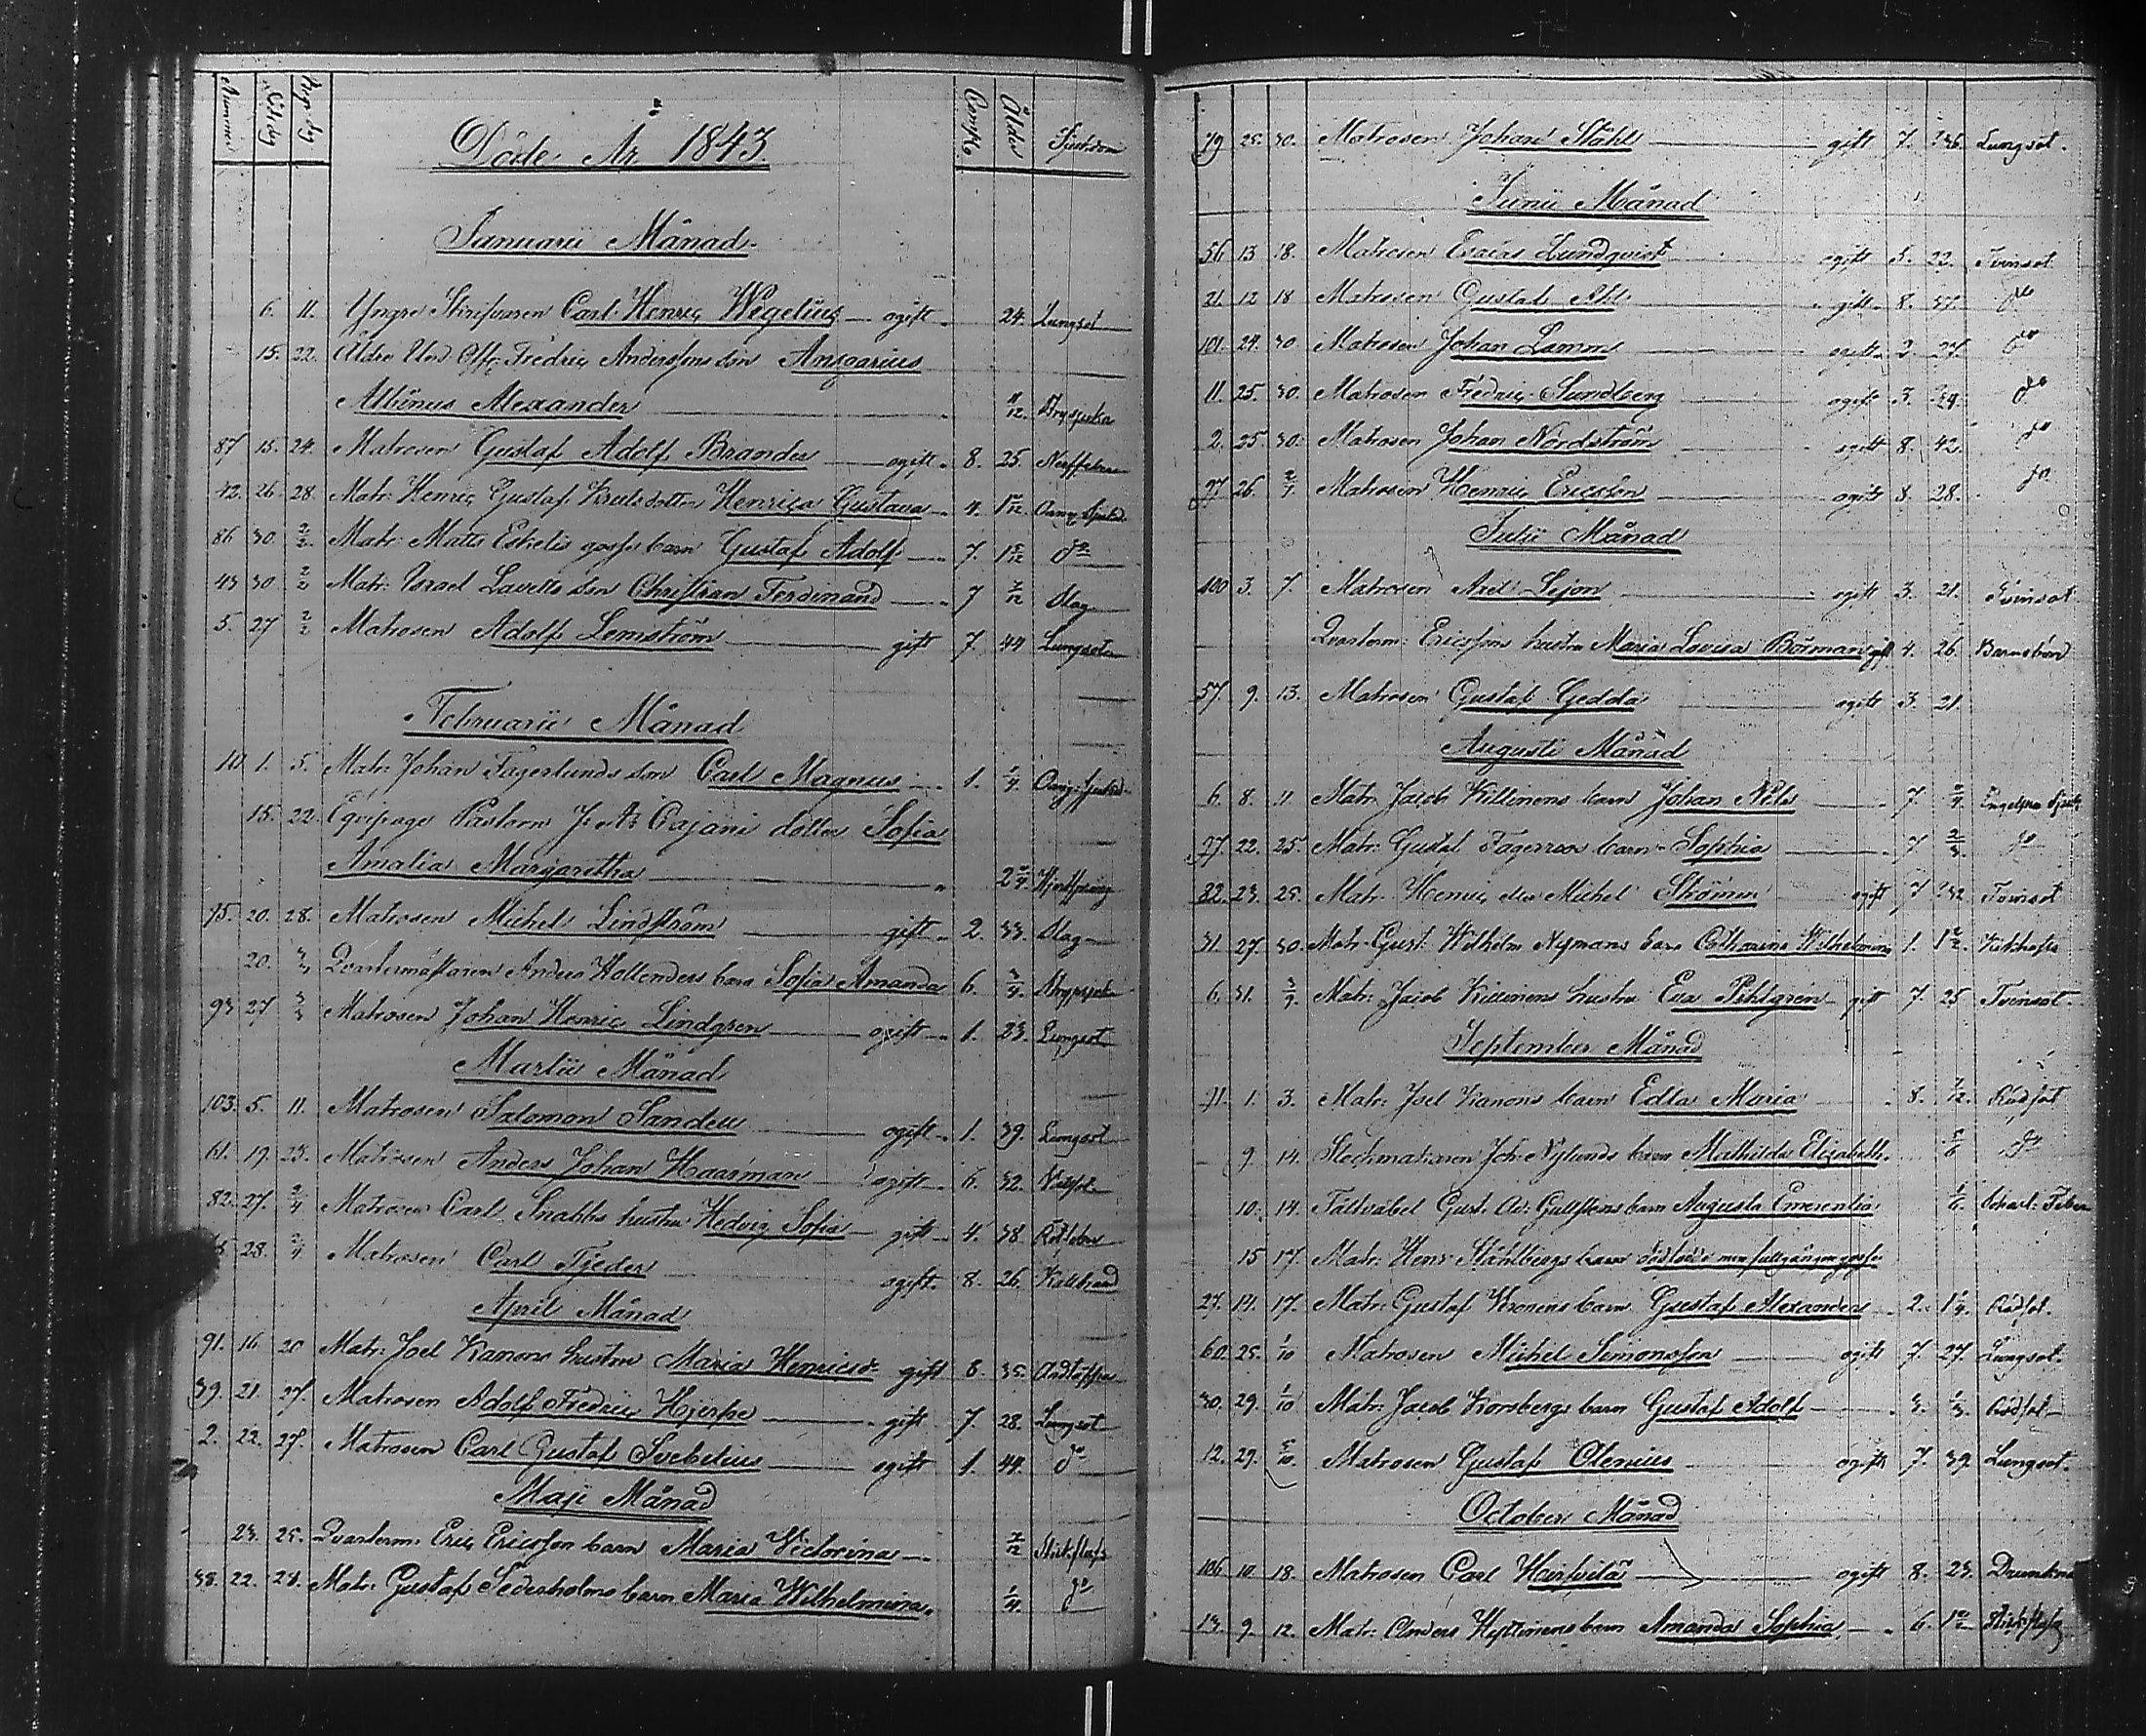 Nummer Död dag Begr. dag Comp. Ålder Sjukdom
Döde År 1843.
Januarii Månad
6. 11. Yngre Skrifvaren Carl Henric Wegelius ogift 24. Lungsot
15. 22. Äldre Und. Off. Fredric Anderssons son Ansgarius
Albinus Alexander 11/12. Bröstsjuka
87 15. 24. Matrosen Gustaf Adolf Brander ogift 8. 25. Nerffeber
42. 26 28. Matr: Henric Gustaf dotter Henrica Gustava 4.
86 30. 2/2. Matr: Matts Eskelis gosse barn Gustaf Adolf 7. 1 5/12 do
43 30 2/2 Matr: Israel Lavells son Christian Ferdinand 7 7/12 Slag
5. 27 2/2 Matrosen Adolf Lemström gift 7 44 Lungsot
Februarii Månad
110 1. 5. Matr: Johan Fagerlunds son Carl Magnus 1. 1/4.
15. 22. Equipage Pastorn J. A. Cajani dotter Sofia
Amalia Margaretha
75. 20. 28. Matrosen Michel Lindström gift 2. 33. Slag
20. Qvartermästaren Anders Hollenders barn Sofia Amanda 6. 3/4.
93 27 Matrosen Johan Henric Lindgren ogift 1. 23. Lungsot
Martii Månad
103. 5. 11. Matrosen Salomon Sandell ogift 1. 39. Lungsot
61. 19. 25. Matrosen Anders Johan Haarman ogift 6. 32.
82. 27. 2/4 Matrosen Carl Snabbs hustru Hedvig Sofia gift 4. 38. Rötfeber
28. 2/4 Matrosen Carl Tjeder ogift 8. 26. Kallbrand
April Månad
91. 16. 20 Matr: Joel Kanons hustru Maria Henricsdr gift 8. 35. Andtäppa
39. 21. 27. Matrosen Adolf Fredric Hjerpe gift 7. 28. Lungsot
2. 22. 27. Matrosen Carl Gustaf Svebelius ogift 1. 44. do
Maji Månad
23. 25. Qvarterm: Eric Ericsson barn Maria Victorina 7/12
38. 22. 28. Matr: Gustaf Sederholms barn Maria Wilhelmina 1/4. do
79 25. 30. Matrosen Johan Ståhl gift 7. 36. Lungsot.
Junii Månad
56 13 18. Matrosen Esaias Lundqvist ogift 3. 22. Tvinsot
21. 12 18 Matrosen Gustaf Ahl gift 8. 37. do
101. 24. 30 Matrosen Johan Lamm ogift 2. 27. do
11. 25. 30. Matrosen Fredric Sundberg ogift 3. 24. do
2. 25. 30. Matrosen Johan Nordström ogift 8. 42. do
97 26. 2/7. Matrosen Henric Ericsson ogift 8. 28. do
Julii Månad
100 3. 7. Matrosen Axel Lejon ogift 3. 21. Tvinsot
Qvarterm: Ericssons hustru Maria Lovisa Börman gift 4. 26. Barnsbörd
57. 9. 13. Matrosen Gustaf Gedda ogift 3. 21.
Augusti Månad
6. 8. 11 Matr: Jacob Killinens barn Johan Nils 7. Engelska Sjuk
97. 22. 25. Matr: Gustaf Fagerroos barn Sophia 7 2/3. do
82. 23. 25. Matr: Henric eller Michel Strömm ogift 7 32 Tvinsot
31. 27. 30. Matr: Gust: Wilhelm Nymans barn Catharina Wilhelmina 1. Kikhosta
6. 31. 3/9. Matr: Jacob Killinens hustru Eva Pihlgren gift 7. 25 Tvinsot
September Månad
91. 1. 3. Matr: Joel Kanons barn Edla Maria 8. 7/12. Rödsot
9. 14. Steckmakaren Joh: Nylunds barn Mathilda Elisabeth do
10. 14. Fältväbel Gust. Ad: Gullstens barn Augusta Emerentia 1/6. Scharl: Feber
15 17. Matr: Henr: Ståhlbergs barn dödfödd men fullgången gosse
27. 14. 17. Matr: Gustaf Kronens barn Gustaf Alexander 2. 1 1/4. Rödsot.
60. 25. 1/10 Matrosen Michel Simonsson ogift 7 27. Lungsot.
30. 29. 1/10 Matr: Jacob Korsbergs barn Gustaf Adolf 3. 1/3. Rödsot
12. 29. 5/10. Matrosen Gustaf Clenius ogift 7. 39. Lungsot.
October Månad
106 10. 18. Matrosen Carl ogift 8. 23.
13. 9. 12. Matr: Anders Hyttinens barn Amanda Sophia 6.